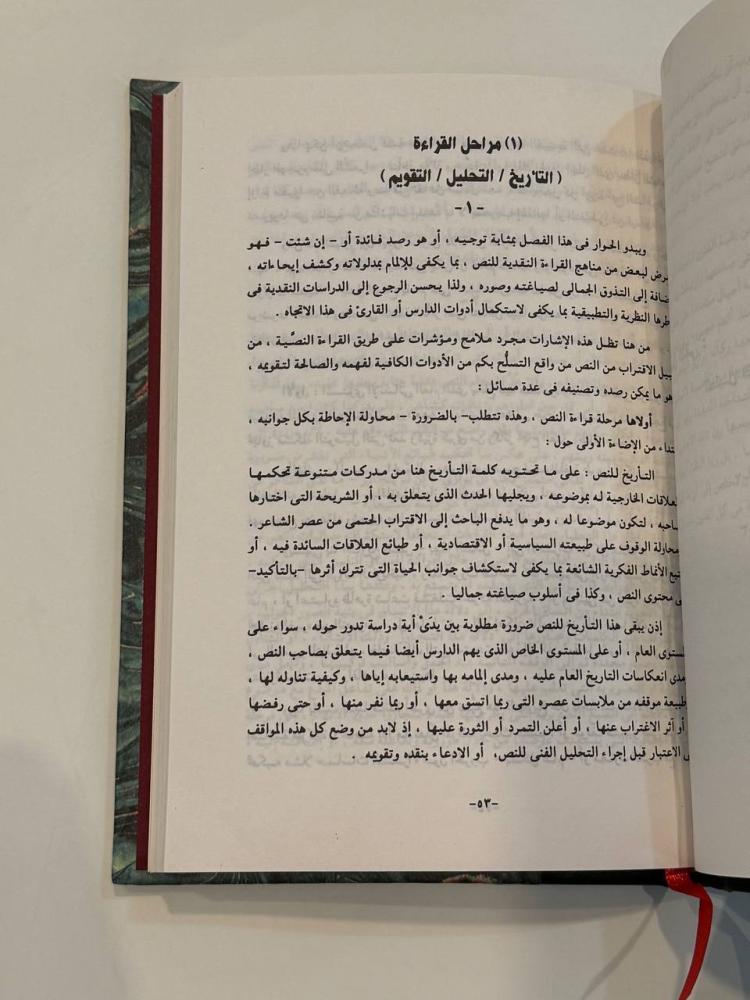 (١) مراحل القراءة
( التأريخ / التحليل / التقويم )
-١-
ويبدو الحوار فى هذا الفصل بمثابة توجيه ، أو هو رصد فائدة أو - إن شئت - فهو
لبعض من مناهج القراءة النقدية للنص ، بما يكفى للإلمام بمدلولاته وكشف إيحاءاته ،
إلى التذوق الجمالى لصياغته وصوره ، ولذا يحسن الرجوع إلى الدراسات النقدية فى
النظرية والتطبيقية بما يكفى لاستكمال أدوات الدارس أو القارئ فى هذا الاتجاه .
من هنا تظل هذه الإشارات مجرد ملامح ومؤشرات على طريق القراءة النصيَّة ، من
الاقتراب من النص من واقع التسلُّح بكم من الأدوات الكافية لفهمه والصالحة لتقويمه ،
هو ما يمكن رصده وتصنيفه فى عدة مسائل :
أولاها مرحلة قراءة النص ، وهذه تتطلب- بالضرورة - محاولة الإحاطة بكل جوانبه ،
من الإضاءة الأولى حول :
التأريخ للنص : على ما تحتويه كلمة التأريخ هنا من مدركات متنوعة تحكمها
الخارجية له بموضوعه ، ويجليها الحدث الذى يتعلق به ، أو الشريحة التى اختارها
، لتكون موضوعا له ، وهو ما يدفع الباحث إلى الاقتراب الحتمى من عصر الشاعر .
الوقوف على طبيعته السياسية أو الاقتصادية ، أو طبائع العلاقات السائدة فيه ، أو
الأنماط الفكرية الشائعة بما يكفى لاستكشاف جوانب الحياة التى تترك أثرها -بالتأكيد-
محتوى النص ، وكذا فى أسلوب صياغته جماليا .
إذن يبقى هذا التأريخ للنص ضرورة مطلوبة بين يدَىْ أية دراسة تدور حوله ، سواء على
العام ، أو على المستوى الخاص الذى يهم الدارس أيضا فيما يتعلق بصاحب النص ،
انعكاسات التاريخ العام عليه ، ومدى إلمامه بها واستيعابه إياها ، وكيفية تناوله لها ،
موقفه من ملابسات عصره التى ربما اتسق معها ، أو ربما نفر منها ، أو حتى رفضها
أو آثر الاغتراب عنها ، أو أعلن التمرد أو الثورة عليها ، إذ لابد من وضع كل هذه المواقف
الاعتبار قبل إجراء التحليل الفنى للنص، أو الادعاء بنقده وتقويمه .
-٥٣-